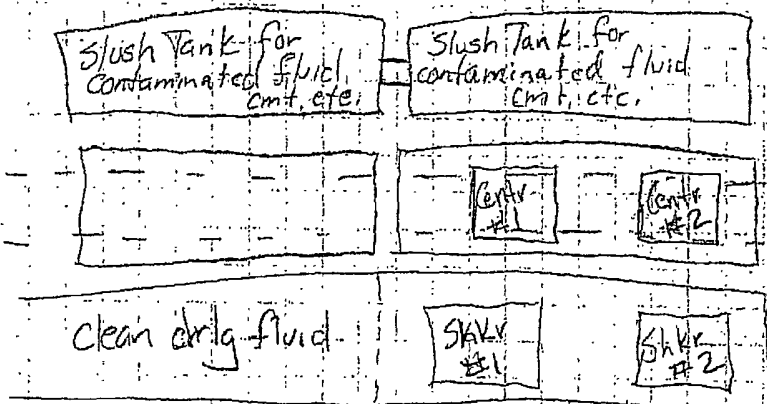 Slush Tank for
contaminated fluid,
cmt, etc.
Slush Tank for
contaminated fluid
cmt, etc.
Centr
#1
Centr
#2
Clean drlg fluid
Shkr
#1
Shkr
#2